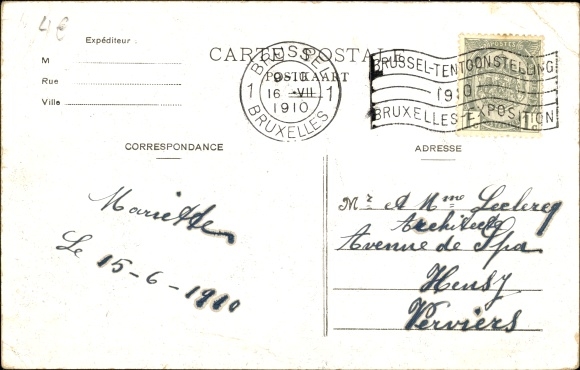 4€
Expéditeur :
M
Rue
Ville
CARTE POSTALE
POSTKAART
BRUSSEL
9-10
1 16 -VII- 1
1910
BRUXELLES
POSTES
BRUSSEL-TENTOONSTELLING
1910
BRUXELLES-EXPOSITION
1c 1c
CORRESPONDANCE
ADRESSE
Mariette
Le 15-6-1910
Mr et Mme Leclercq
Architecte
Avenue de Spa
Heusy
Verviers